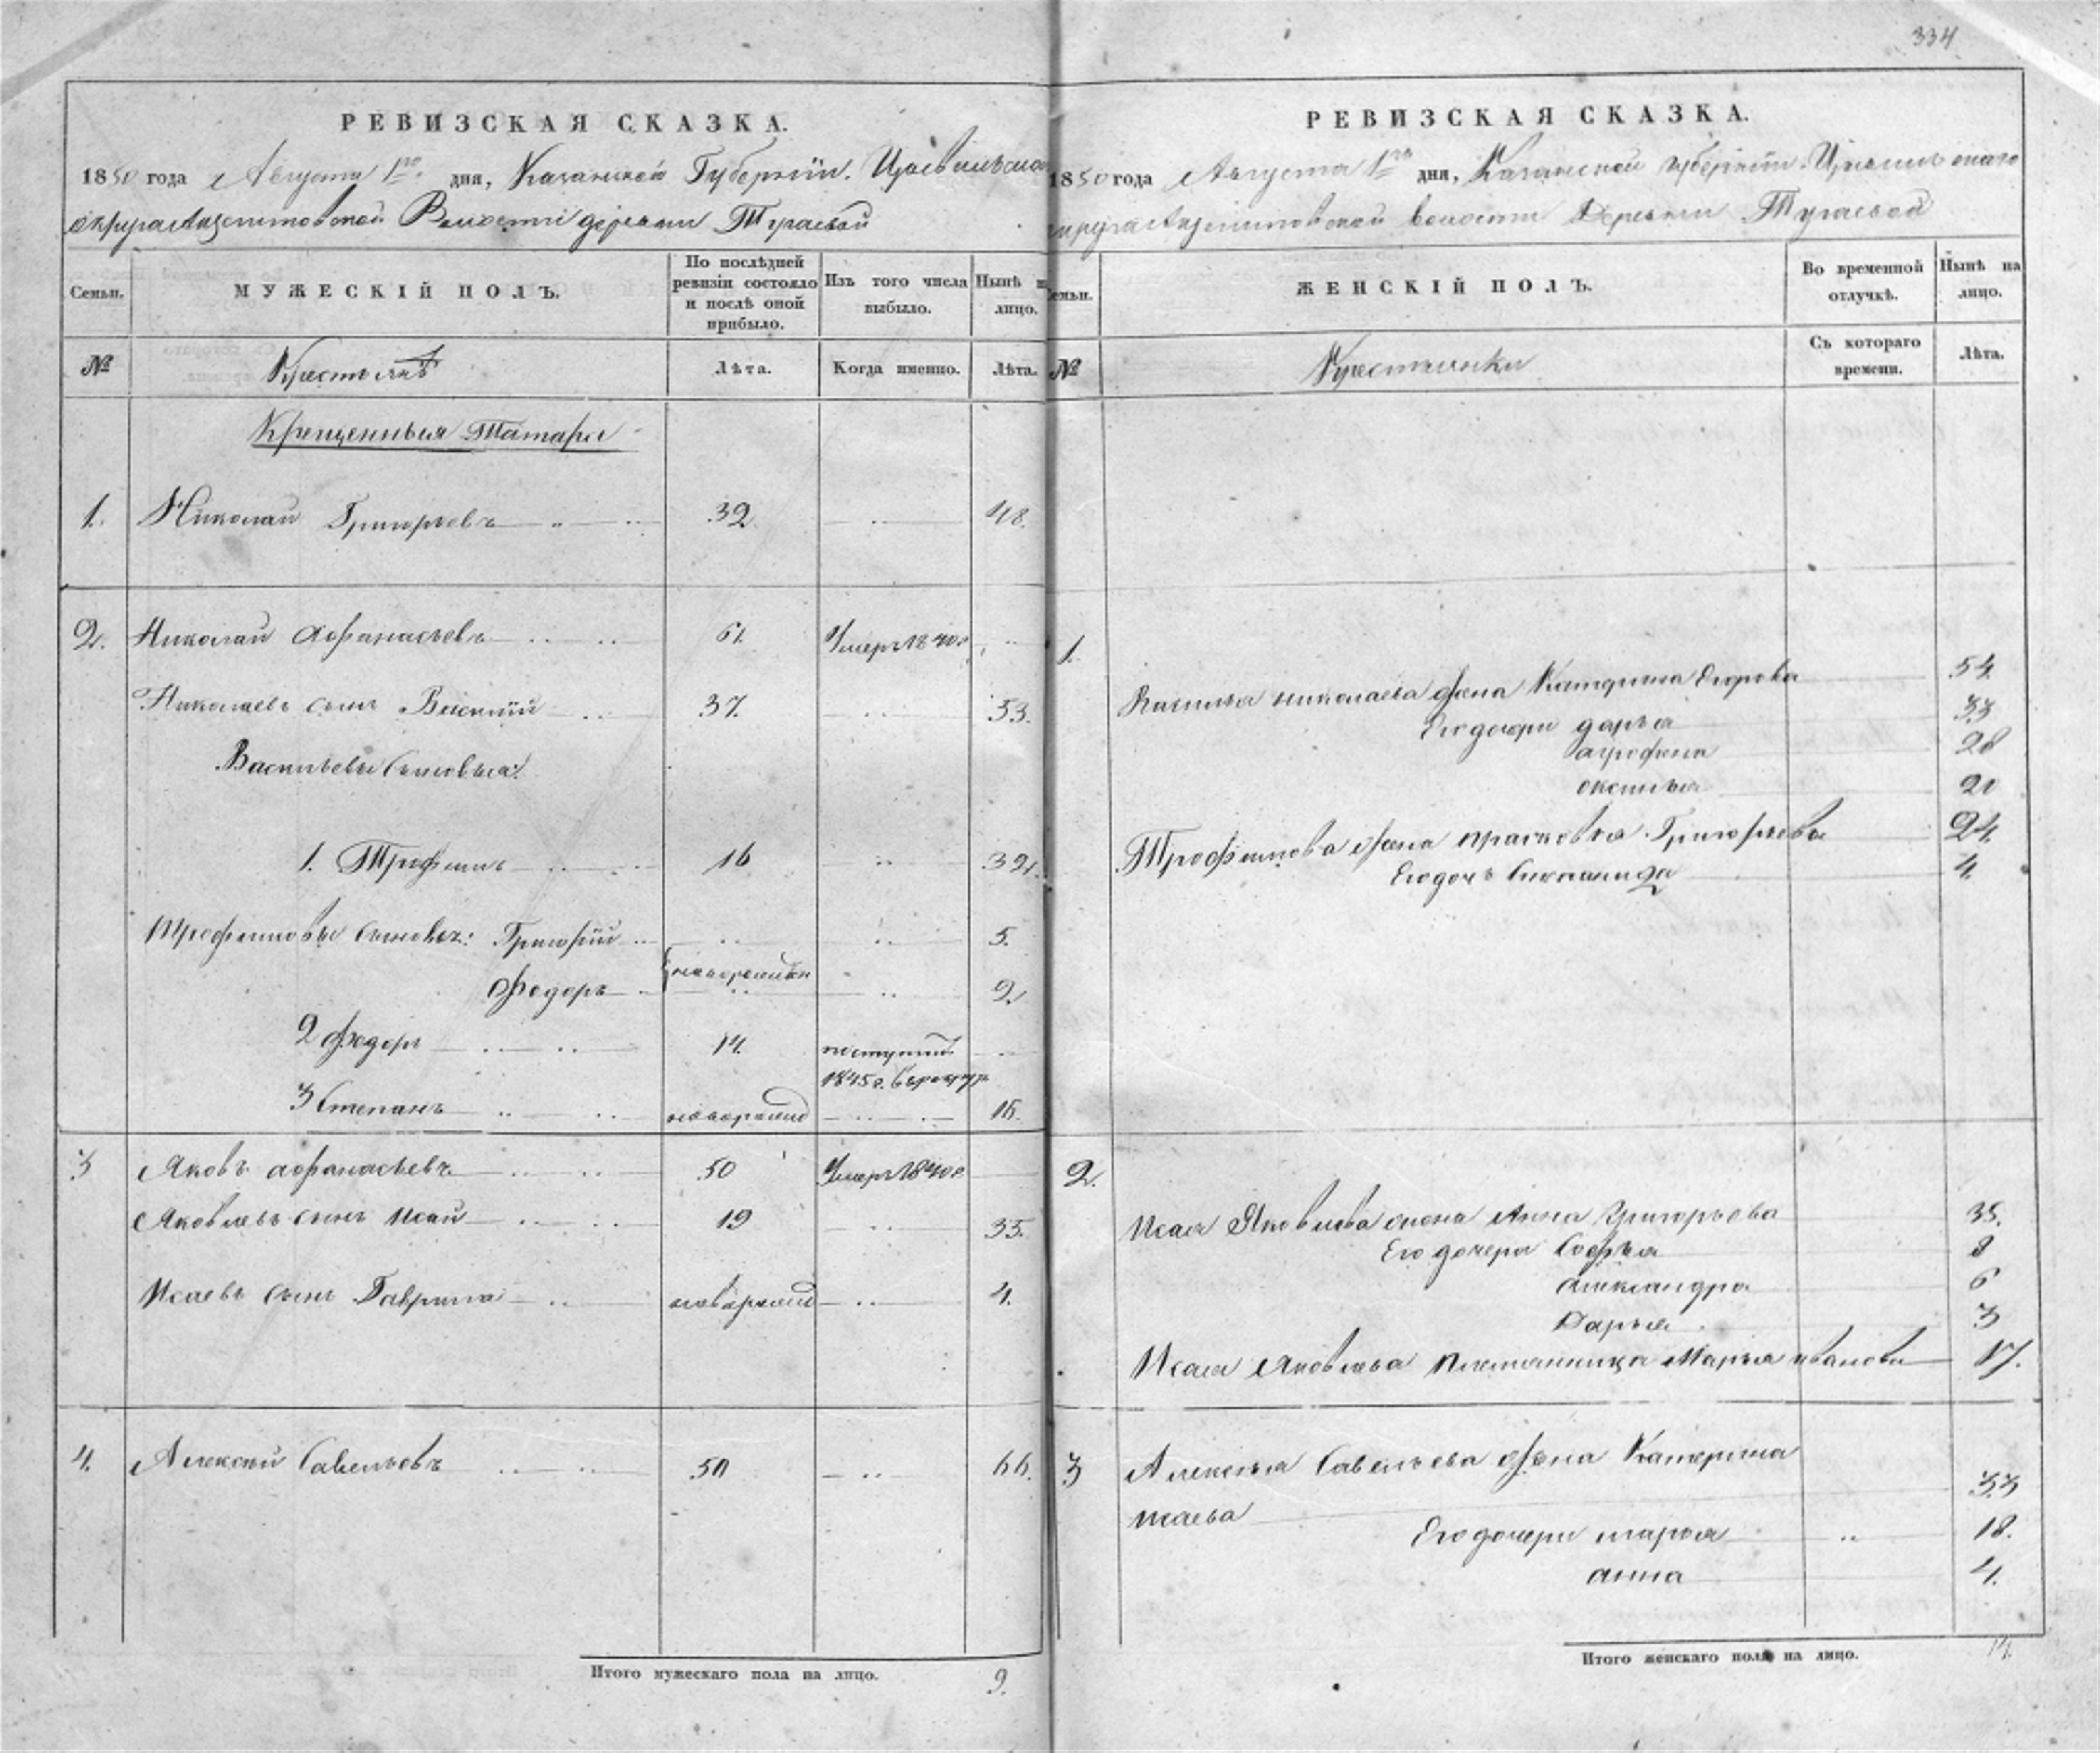 334
РЕВИЗСКАЯ СКАЗКА.
1850 года Августа 1го дня, Казанской Губернiи. Цывильска
округа Аzелитовской Волости деревни Тугаевой
Семьи. МУЖЕСКIЙ ПОЛЪ. По послѣдней ревизiи состояло и послѣ оной прибыло. Изъ того числа выбыло. Нынѣ на лицо.
№ Крестьянъ Лѣта. Когда именно. Лѣта.
Крещенныя Татары
1. Николай Григорьевъ 32 48.
2. Николай Афанасьевъ 61. Умеръ 1840г.
Николаевъ сынъ Василiй 37. 53.
Васильевы сыновья:
1. Трофимъ 16 32.
Трофимовы сыновья: Григорiй 5.
новорожден
Федоръ 2.
2 Федоръ 14. поступилъ
1845г. в рекруты
3 Степанъ новорожд 15.
3 Яковъ Афанасьевъ 50 Умеръ 1840г
Яковлевъ сынъ Исай 19 35.
Исаевъ сынъ Гаврила новорожд 4.
4. Алексѣй Савельевъ 50 66.
Итого мужескаго пола на лицо. 9.
РЕВИЗСКАЯ СКАЗКА.
1850 года Августа 1го дня, Казанской губернiи Цывильскаго
округа волости Деревни Тугаевой
Семьи. ЖЕНСКIЙ ПОЛЪ. Во временной отлучкѣ. Нынѣ на лицо.
№ Крестьянки Съ котораго времени. Лѣта.
1.
Василья николаева жена Катерина Егорова 54
Его дочери дарья 33
агрофена 28
оксинья 20
Трофимова жена прасковья Григорьева 24.
Его дочь 4
2.
Исая Яковлева жена Анна Григорьева 35.
Его дочери Софья 8
александра 6
Дарья 3
Исая Яковлева племянница Марья иванова 17.
3 Алексѣя Савельева жена Катерина
исаева 33
Его дочери марья 18.
анна 4.
Итого женскаго пола на лицо. 14.